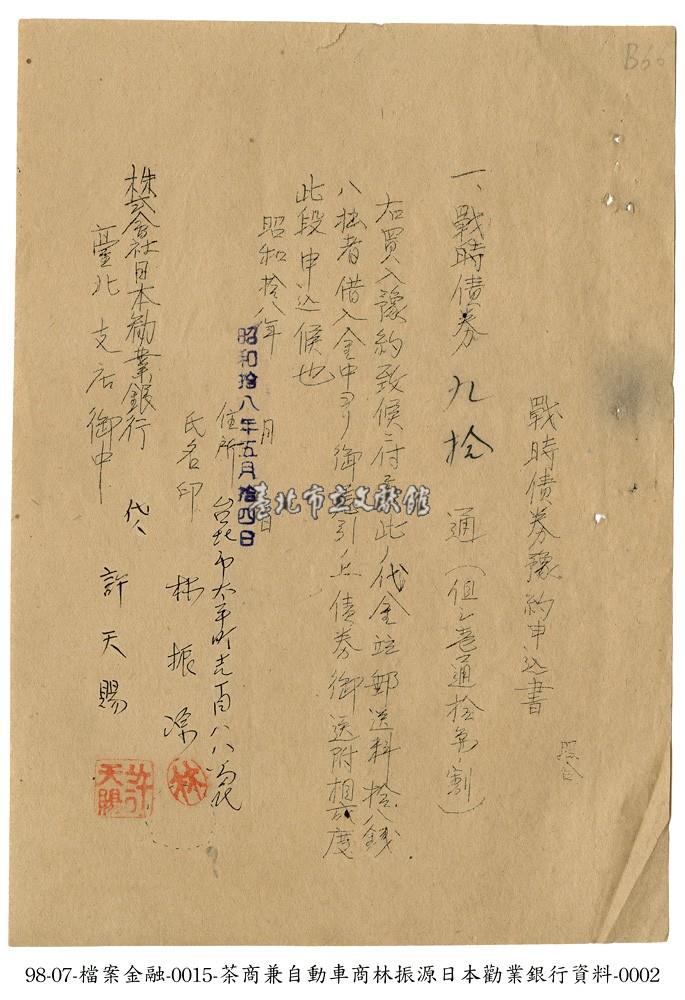 B66
戰時債券豫約申込書
照合
一、戰時債券 九拾 通(但シ壱通拾弗ノ割)
右買入豫約致候ニ付テハ此ノ代金並郵送料拾八錢
ハ拙者借入金中ヨリ御差引ノ上債券御送附相成度
此段申込候也
昭和拾八年 月 日
昭和拾八年五月拾四日
住所 台北市太平町 百八八番地
氏名印 林振源
林
株式會社日本勧業銀行
臺北支店御中
代 許天賜
許天賜
臺北市立文獻館
98-07-檔案金融-0015-茶商兼自動車商林振源日本勸業銀行資料-0002